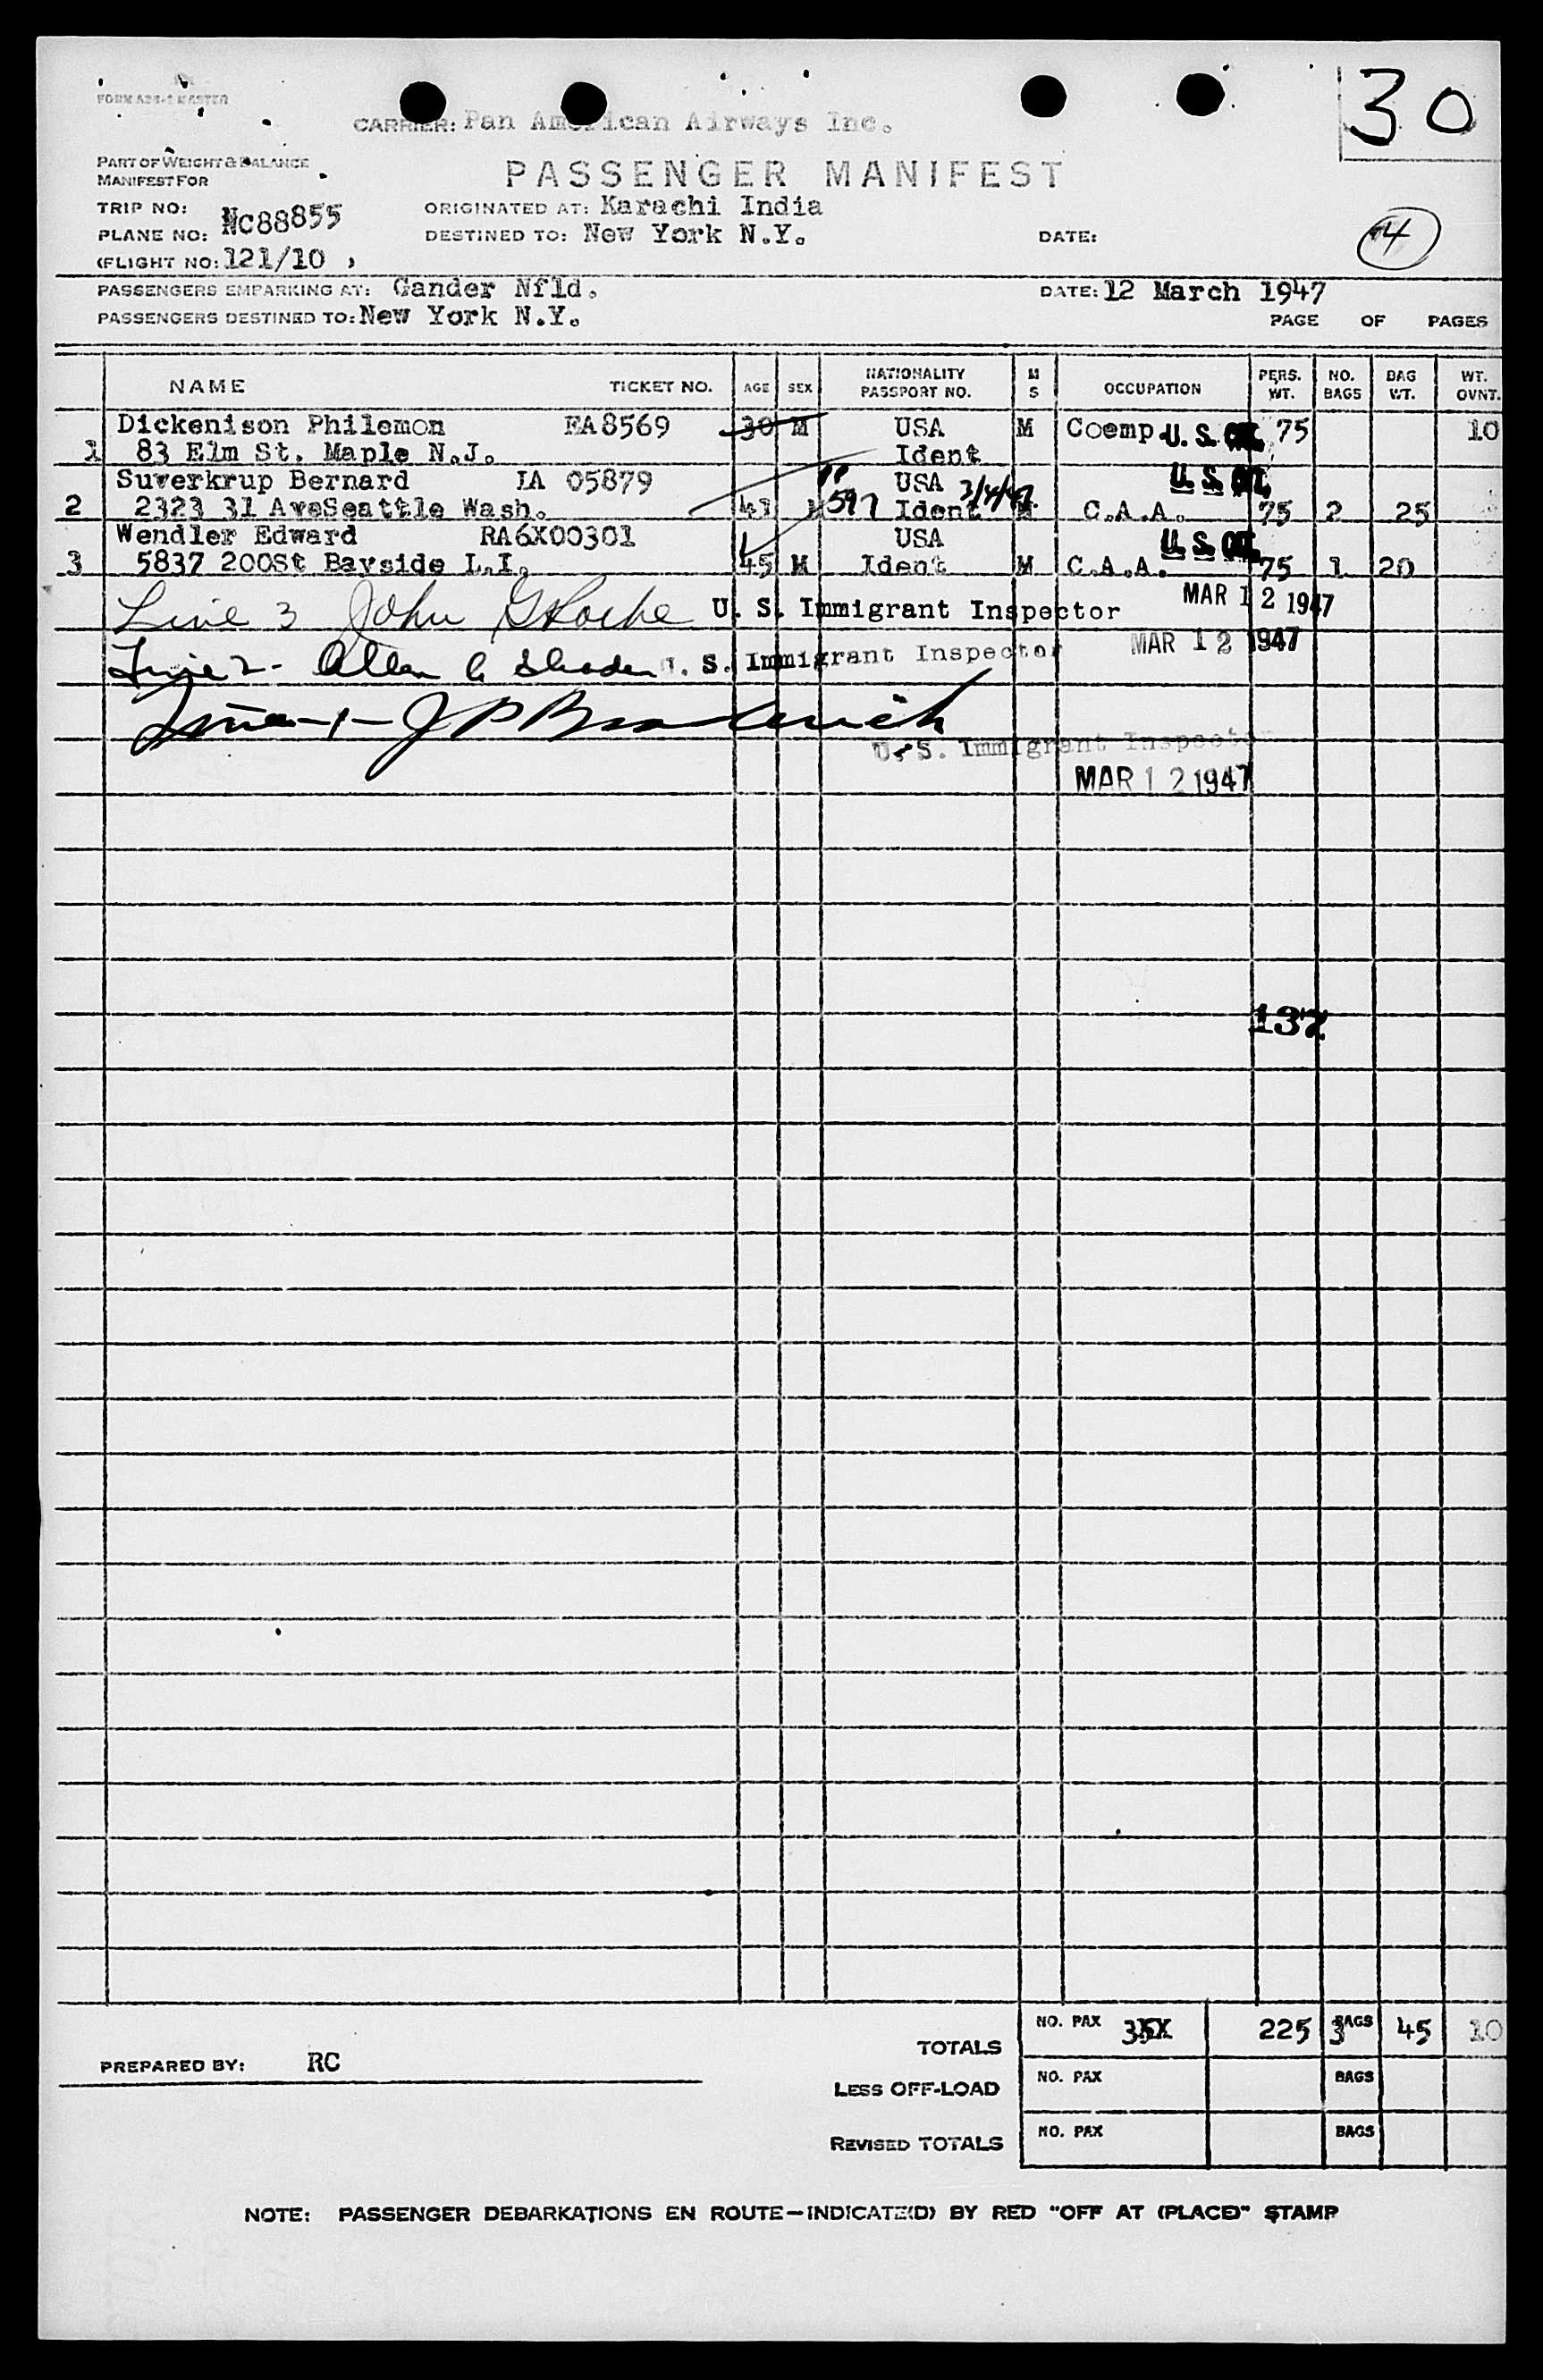 FORM ADS-2 MASTER
30
CARRIER: Pan American Airways Inc.
PART OF WEIGHT & BALANCE
MANIFEST FOR
PASSENGER MANIFEST
TRIP NO:
PLANE NO: NC88855
ORIGINATED AT: Karachi India
DESTINED TO: New York N.Y.
DATE:
4
(FLIGHT NO: 121/10 )
PASSENGERS EMPARKING AT: Gander Nfld.
DATE: 12 March 1947
PASSENGERS DESTINED TO: New York N.Y.
PAGE OF PAGES
NAME TICKET NO. AGE SEX NATIONALITY PASSPORT NO. M S OCCUPATION PERS. WT. NO. BAGS BAG WT. WT. OVNT.
Dickenison Philemon EA8569 30 M USA M Coemp. U. S. 75 10
1 83 Elm St. Maple N.J. Ident
Suverkrup Bernard IA 05879 USA U. S.
2 2323 31 AveSeattle Wash. 41 597 Ident 3/4/47 C.A.A. 75 2 25
Wendler Edward RA6X00301 USA U. S.
3 5837 200St Bayside L.I. 45 M Ident M C.A.A. 75 1 20
Line 3 John G Roche U. S. Immigrant Inspector MAR 12 1947
Line 2- Allen U. S. Immigrant Inspector MAR 12 1947
Line -1- J P
U. S. Immigrant Inspector
MAR 12 1947
137
TOTALS NO. PAX 3 225 3 BAGS 45 10
PREPARED BY: RC
LESS OFF-LOAD NO. PAX BAGS
REVISED TOTALS NO. PAX BAGS
NOTE: PASSENGER DEBARKATIONS EN ROUTE—INDICATE(D) BY RED "OFF AT (PLACE)" STAMP